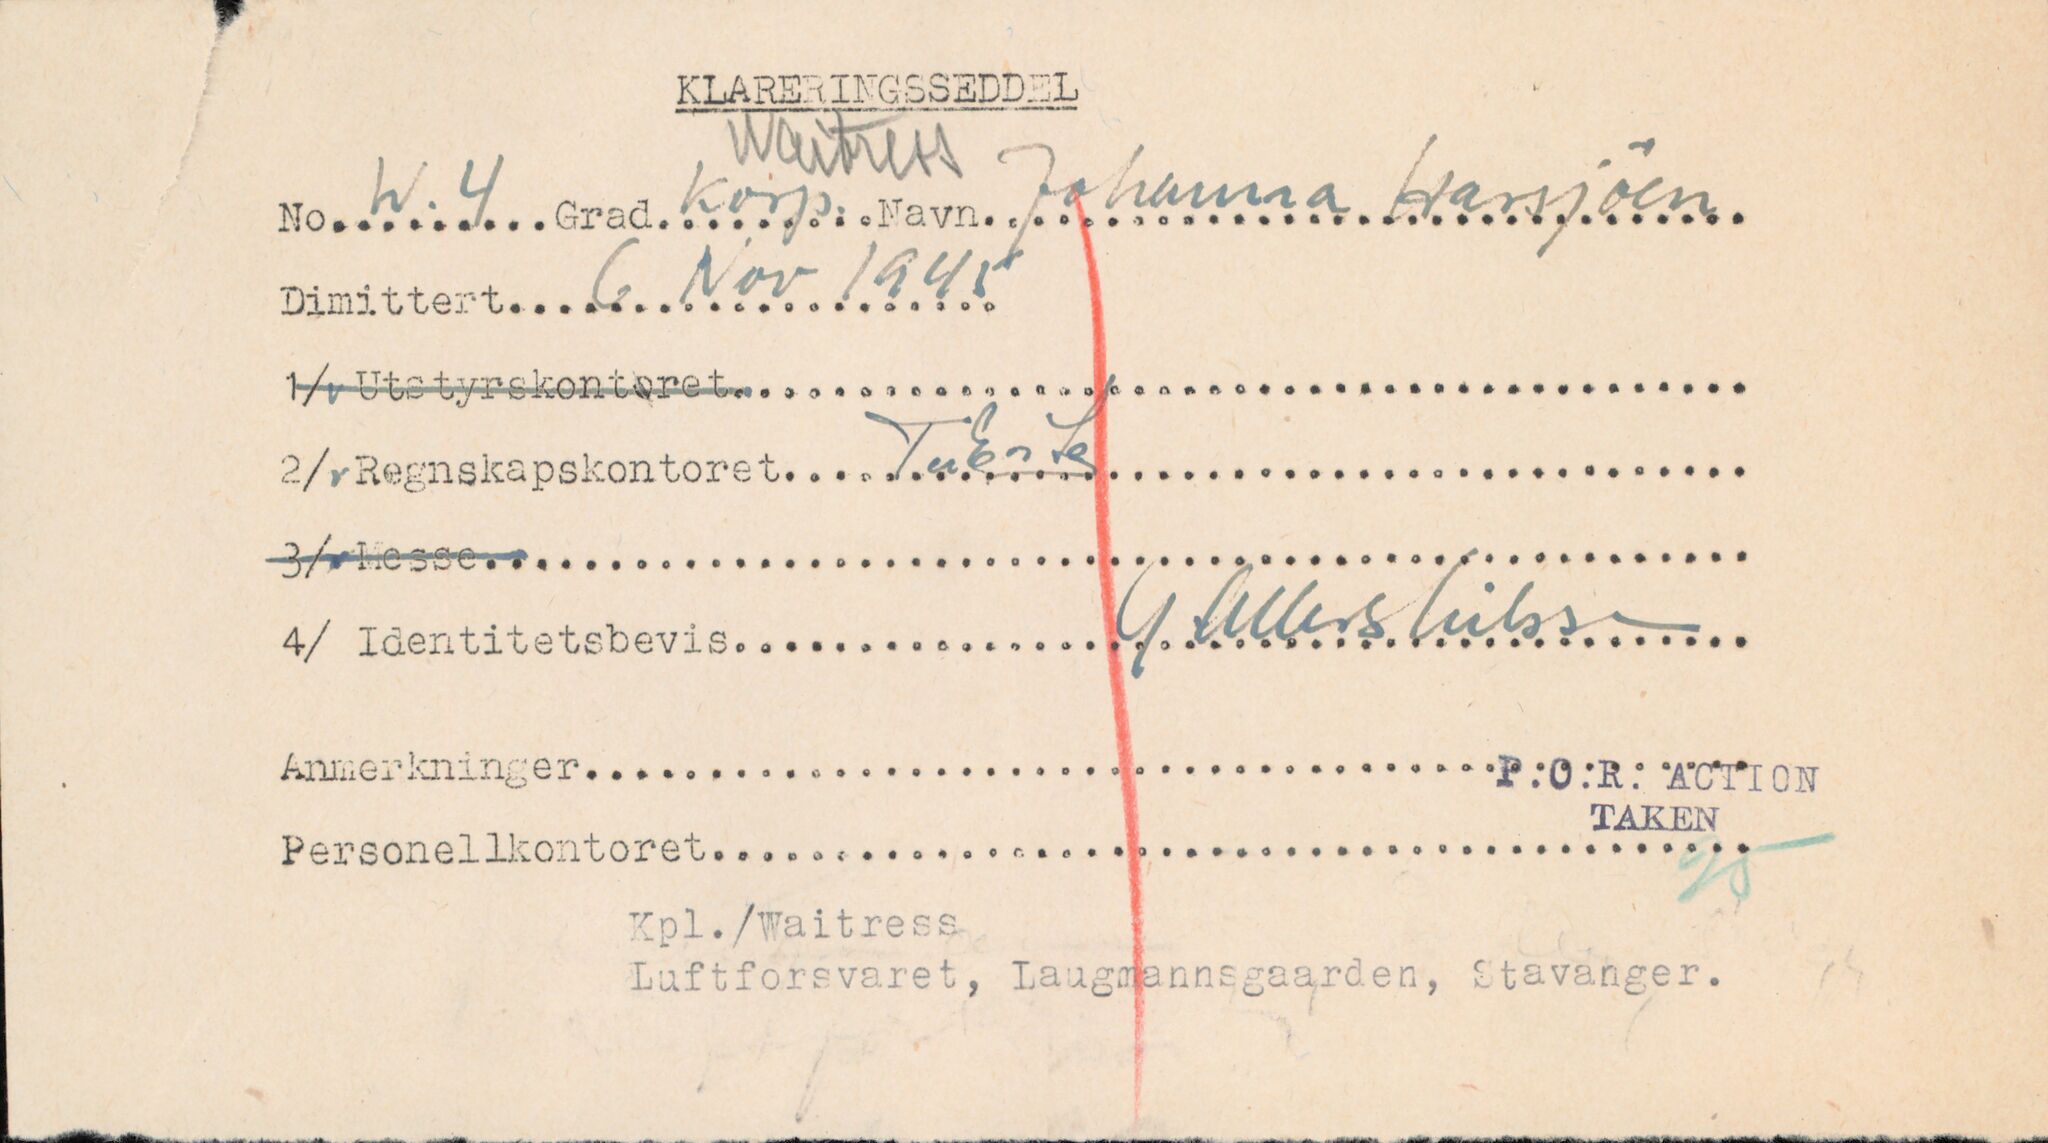 KLARERINGSSEDDEL
Waitress
No. W. 4 Grad Korp. Navn Johanna Harsjöen
Dimittert 6 Nov 1945
1/ Utstyrskontoret
2/ Regnskapskontoret
3/ Messe
4/ Identitetsbevis
Anmerkninger
P.O.R. ACTION
TAKEN
Personellkontoret
Kpl./Waitress
Luftforsvaret, Laugmannsgaarden, Stavanger.